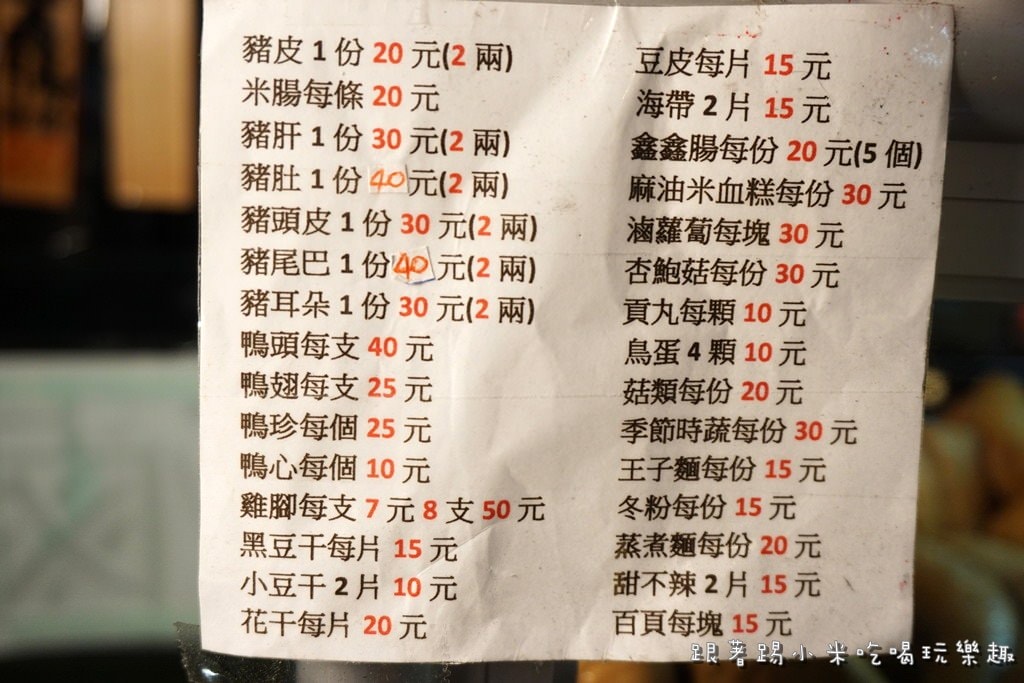 豬皮 1 份 20 元(2 兩)
米腸每條 20 元
豬肝 1 份 30 元(2 兩)
豬肚 1 份 40 元(2 兩)
豬頭皮 1 份 30 元(2 兩)
豬尾巴 1 份 40 元(2 兩)
豬耳朵 1 份 30 元(2 兩)
鴨頭每支 40 元
鴨翅每支 25 元
鴨珍每個 25 元
鴨心每個 10 元
雞腳每支 7 元 8 支 50 元
黑豆干每片 15 元
小豆干 2 片 10 元
花干每片 20 元
豆皮每片 15 元
海帶 2 片 15 元
鑫鑫腸每份 20 元(5 個)
麻油米血糕每份 30 元
滷蘿蔔每塊 30 元
杏鮑菇每份 30 元
貢丸每顆 10 元
鳥蛋 4 顆 10 元
菇類每份 20 元
季節時蔬每份 30 元
王子麵每份 15 元
冬粉每份 15 元
蒸煮麵每份 20 元
甜不辣 2 片 15 元
百頁每塊 15 元
跟著踢小米吃喝玩樂趣